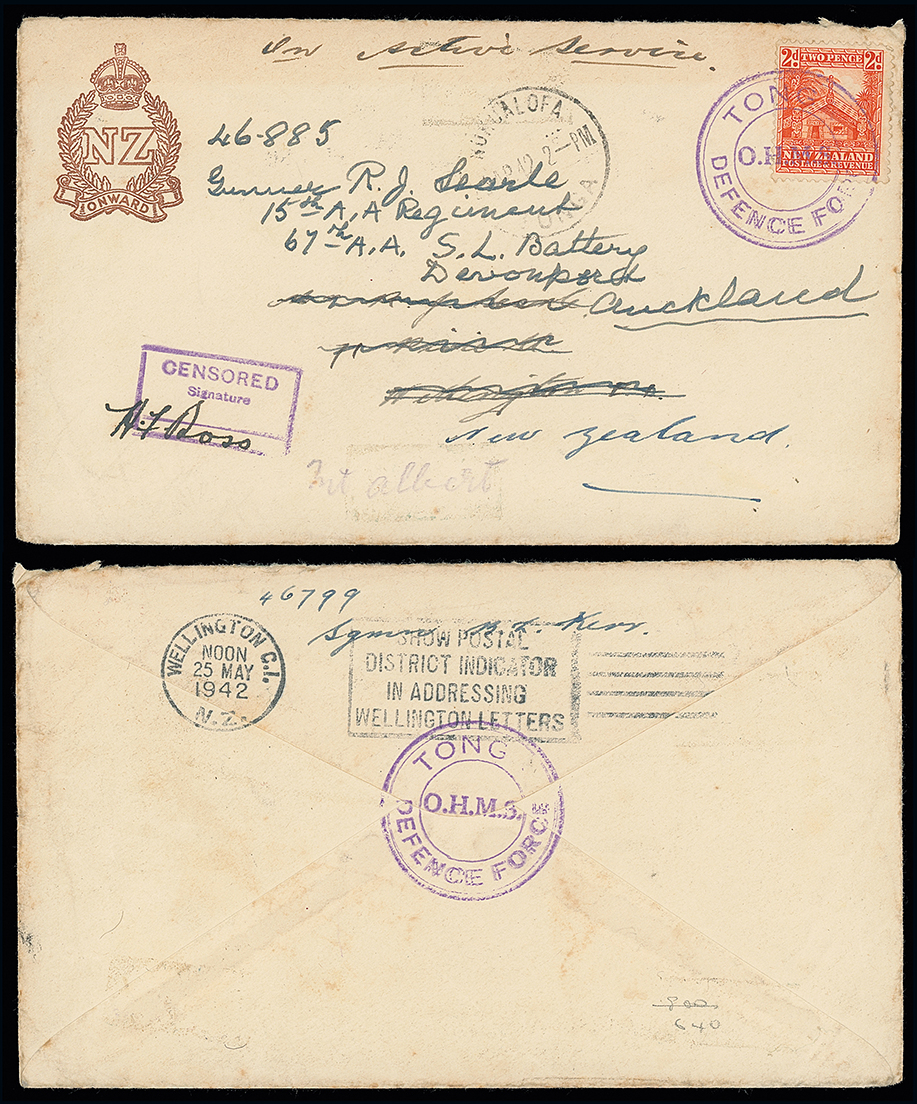 On Active Service.
NZ
ONWARD
2d TWO PENCE 2d
NEW ZEALAND
POSTAGE & REVENUE
TONG
O.H.M.S.
DEFENCE FORC
NUKUALOFA
2-PM
TONGA
46-885
Gunner R. J. Searle
15th A.A Regiment
67th A.A. S.L. Battery
Devonport
Auckland
New Zealand.
CENSORED
Signature
H.F Ross
Mt albert
46799
Kerr.
WELLINGTON C.1.
NOON
25 MAY
1942
N.Z.
SHOW POSTAL
DISTRICT INDICATOR
IN ADDRESSING
WELLINGTON LETTERS
TONG
O.H.M.S.
DEFENCE FORCE
800
640